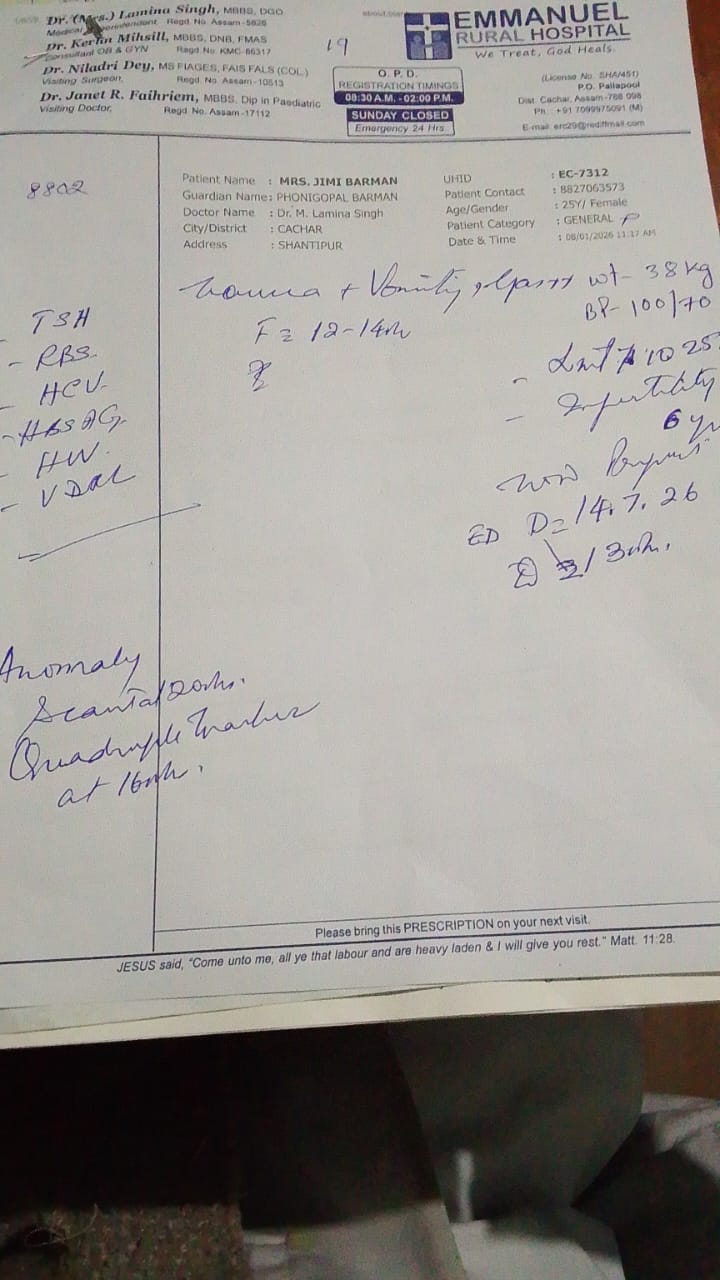 Dr. (Mrs.) Lamina Singh, MBBS, DGO
Medical Superintendent, Regd. No. Assam-5626
Dr. Kerlin Mihsill, MBBS, DNB, FMAS
Consultant OB & GYN Regd. No. KMC-86317
Dr. Niladri Dey, MS FIAGES, FAIS FALS (COL.)
Visiting Surgeon, Regd. No. Assam-10513
Dr. Janet R. Faihriem, MBBS, Dip in Paediatric
Visiting Doctor, Regd. No. Assam-17112
19
O. P. D.
REGISTRATION TIMINGS
08:30 A.M. -02:00 P.M.
SUNDAY CLOSED
Emergency 24 Hrs.
EMMANUEL
RURAL HOSPITAL
We Treat, God Heals.
(License No. SHA/451)
P.O. Pailapool
Dist. Cachar, Assam-788 098
Ph. : +91 7099975091 (M)
E-mail: erc29@rediffmail.com
8802
Patient Name : MRS. JIMI BARMAN
Guardian Name : PHONIGOPAL BARMAN
Doctor Name : Dr. M. Lamina Singh
City/District : CACHAR
Address : SHANTIPUR
UHID : EC-7312
Patient Contact : 8827063573
Age/Gender : 25Y/ Female
Patient Category : GENERAL
Date & Time : 08/01/2026 11:17 AM
+ Vomiting
wt- 38 kg
BP- 100/70
F = 12-14wk
- TSH
- RBS
- HCV
- HBSAG
- HIV
- VDRL
- Infertility
6 yr
ED D= 14.7.26
13wk.
Anomaly
Scan at 20wk.
Quadruple Marker
at 16wk.
Please bring this PRESCRIPTION on your next visit.
JESUS said, "Come unto me, all ye that labour and are heavy laden & I will give you rest." Matt. 11:28.